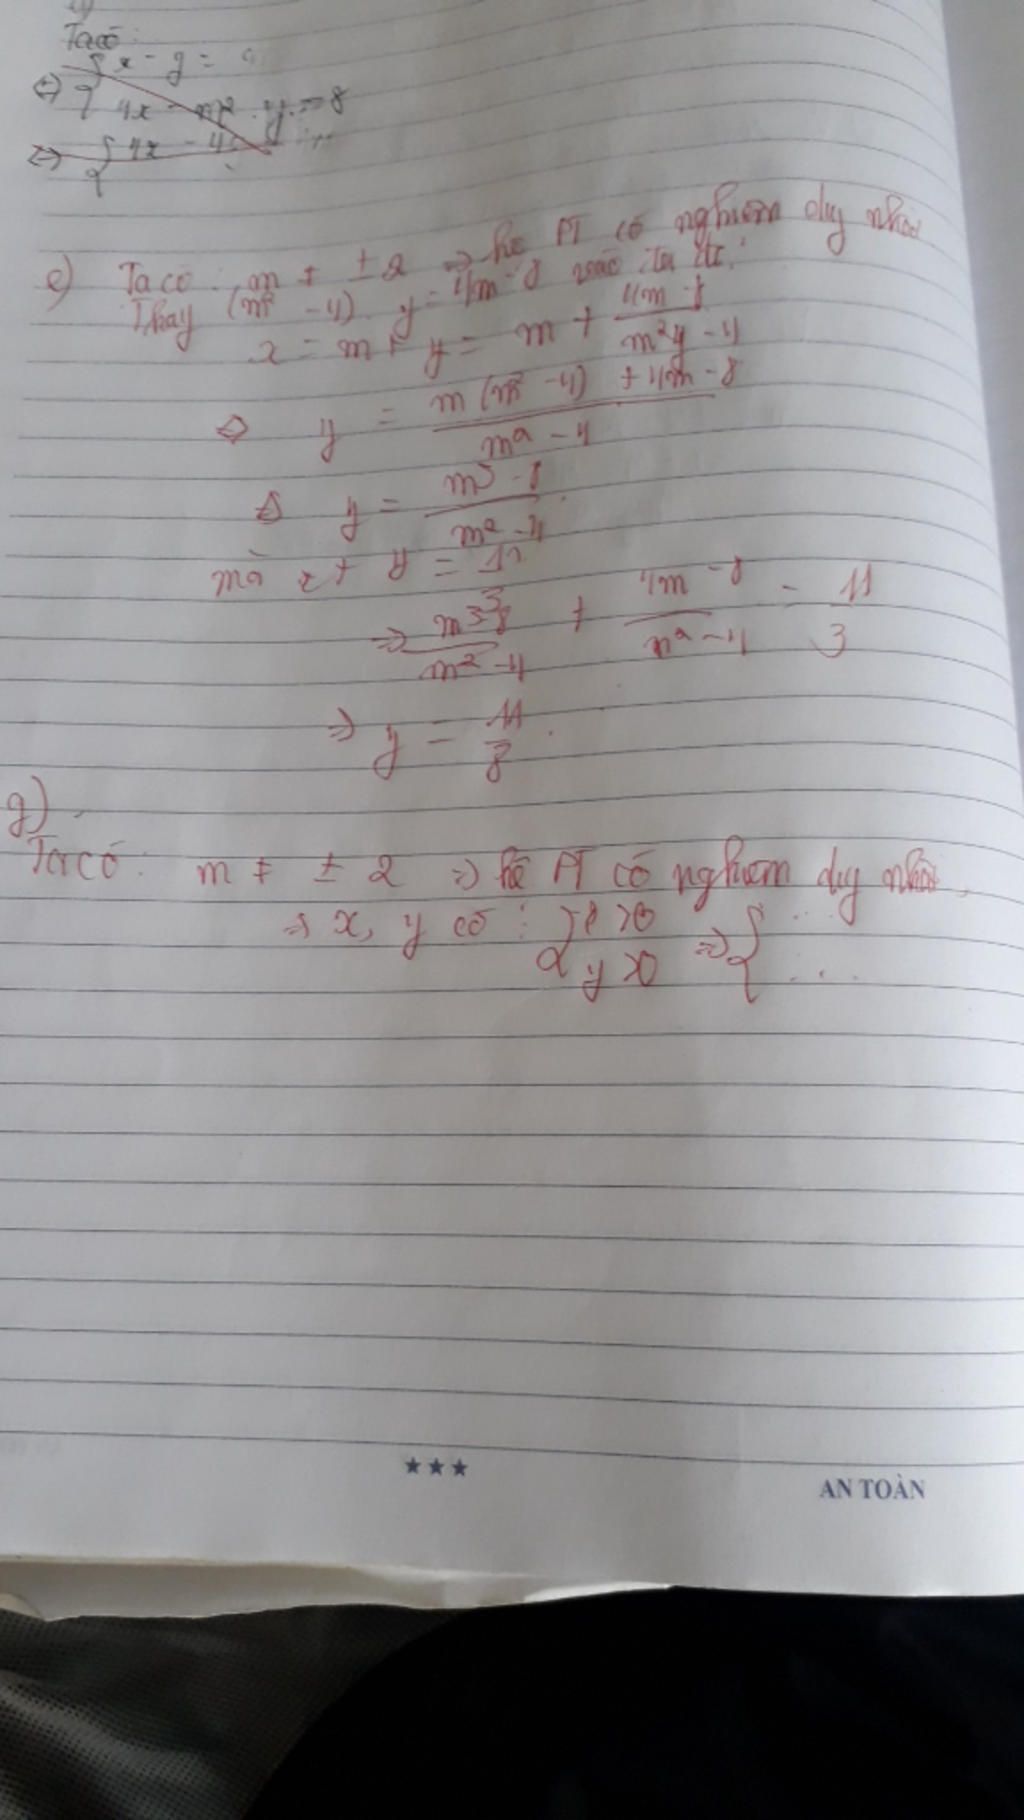 Ta có:
{ x - y =
⇔ { 4x - m² . y = 8
⇔ { 4x - 4
e) Ta có: m ≠ ± 2 ⇒ hệ PT có nghiệm duy nhất
Thay (m² - 4). y = 4m - 8 vào ta đc:
x = m + y = m + 4m - 8 / m²y - 4
⇔ y = m(m² - 4) + 4m - 8 / m² - 4
⇔ y = m³ - 8 / m² - 4
mà x + y = 11 / 3
⇒ m³ - 8 / m² - 4 + 4m - 8 / m² - 4 = 11 / 3
⇒ y = 11 / 8 .
g)
Ta có: m ≠ ± 2 ⇒ hệ PT có nghiệm duy nhất,
⇒ x, y có : { x > 0 ⇒ { ...
y > 0 ...
★★★
AN TOÀN